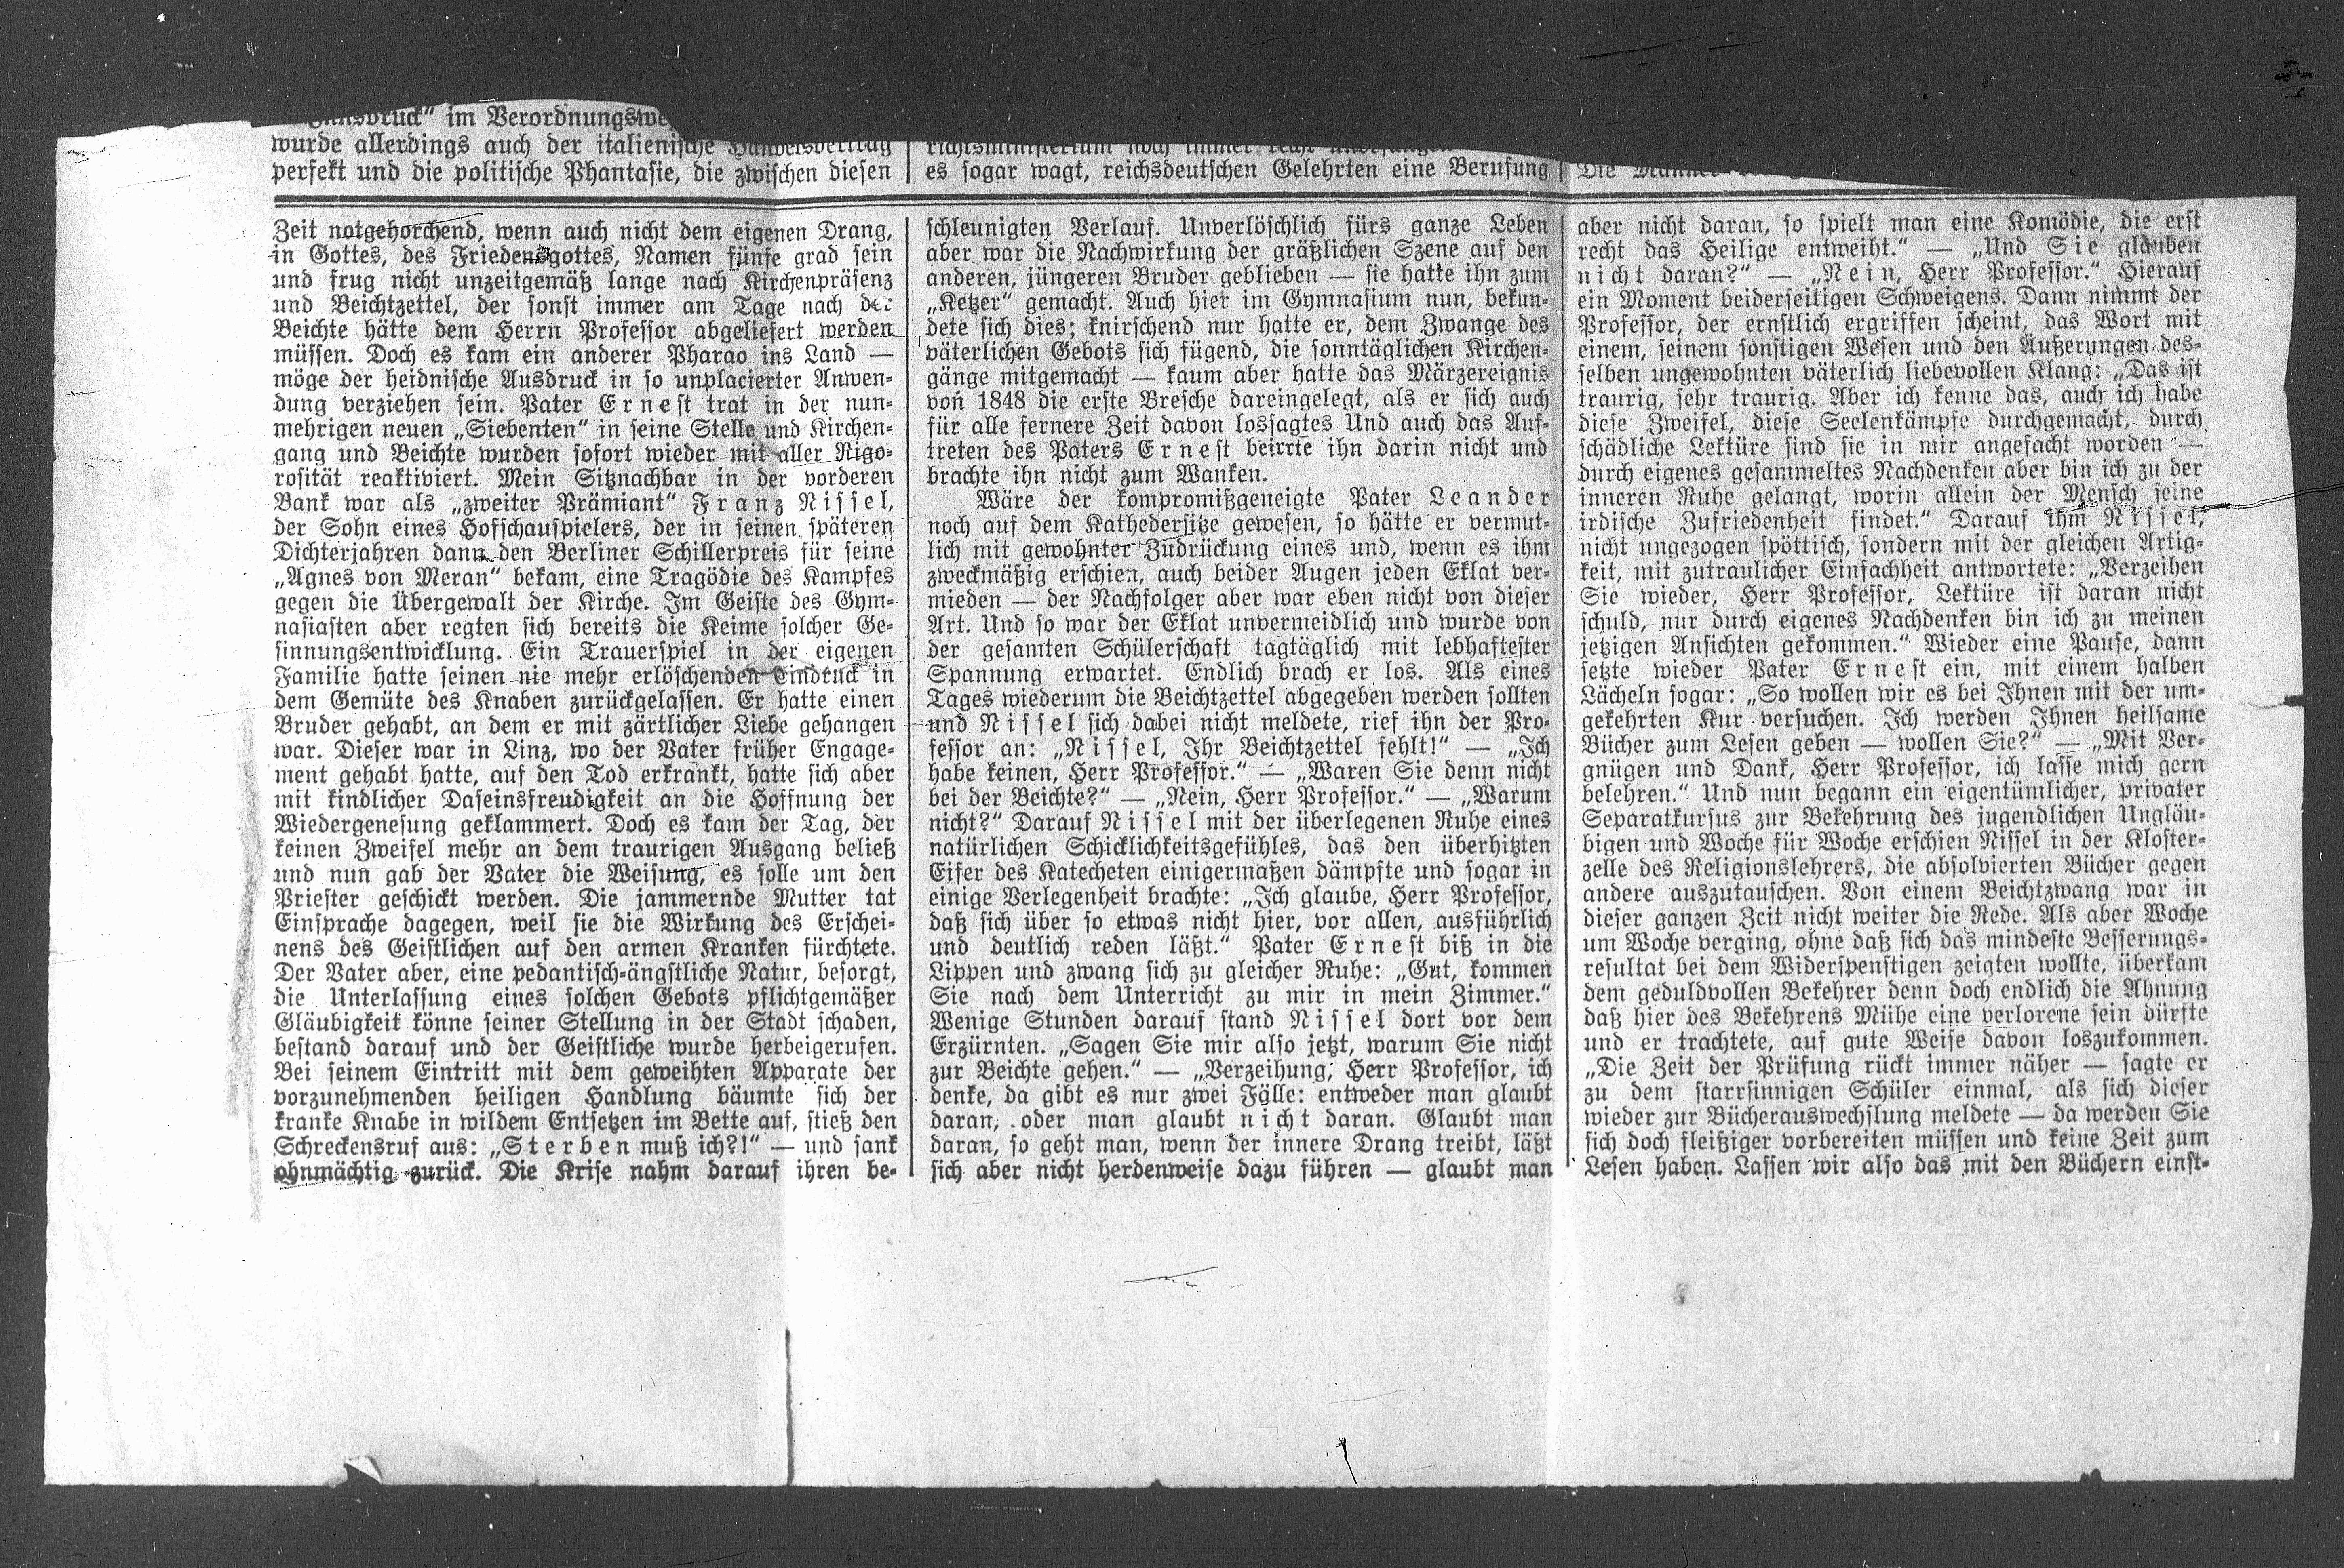 Innsbruck“ im Verordnungswe
wurde allerdings auch der italienische Handelsvertrag
perfekt und die politische Phantasie, die zwischen diesen
richtsministerium noch immer recht
es sogar wagt, reichsdeutschen Gelehrten eine Berufung
Die Männer
Zeit notgehorchend, wenn auch nicht dem eigenen Drang,
in Gottes, des Friedensgottes, Namen fünfe grad sein
und frug nicht unzeitgemäß lange nach Kirchenpräsenz
und Beichtzettel, der sonst immer am Tage nach der
Beichte hätte dem Herrn Professor abgeliefert werden
müssen. Doch es kam ein anderer Pharao ins Land —
möge der heidnische Ausdruck in so unplacierter Anwen-
dung verziehen sein. Pater Ernest trat in der nun-
mehrigen neuen „Siebenten“ in seine Stelle und Kirchen-
gang und Beichte wurden sofort wieder mit aller Rigo-
rosität reaktiviert. Mein Sitznachbar in der vorderen
Bank war als „zweiter Prämiant“ Franz Nissel,
der Sohn eines Hofschauspielers, der in seinen späteren
Dichterjahren dann den Berliner Schillerpreis für seine
„Agnes von Meran“ bekam, eine Tragödie des Kampfes
gegen die Übergewalt der Kirche. Im Geiste des Gym-
nasiasten aber regten sich bereits die Keime solcher Ge-
sinnungsentwicklung. Ein Trauerspiel in der eigenen
Familie hatte seinen nie mehr erlöschenden Eindruck in
dem Gemüte des Knaben zurückgelassen. Er hatte einen
Bruder gehabt, an dem er mit zärtlicher Liebe gehangen
war. Dieser war in Linz, wo der Vater früher Engage-
ment gehabt hatte, auf den Tod erkrankt, hatte sich aber
mit kindlicher Daseinsfreudigkeit an die Hoffnung der
Wiedergenesung geklammert. Doch es kam der Tag, der
keinen Zweifel mehr an dem traurigen Ausgang beließ
und nun gab der Vater die Weisung, es solle um den
Priester geschickt werden. Die jammernde Mutter tat
Einsprache dagegen, weil sie die Wirkung des Erschei-
nens des Geistlichen auf den armen Kranken fürchtete.
Der Vater aber, eine pedantisch-ängstliche Natur, besorgt,
die Unterlassung eines solchen Gebots pflichtgemäßer
Gläubigkeit könne seiner Stellung in der Stadt schaden,
bestand darauf und der Geistliche wurde herbeigerufen.
Bei seinem Eintritt mit dem geweihten Apparate der
vorzunehmenden heiligen Handlung bäumte sich der
kranke Knabe in wildem Entsetzen im Bette auf, stieß den
Schreckensruf aus: „Sterben muß ich?!“ — und sank
ohnmächtig zurück. Die Krise nahm darauf ihren be-
schleunigten Verlauf. Unverlöschlich fürs ganze Leben
aber war die Nachwirkung der gräßlichen Szene auf den
anderen, jüngeren Bruder geblieben — sie hatte ihn zum
„Ketzer“ gemacht. Auch hier im Gymnasium nun, bekun-
dete sich dies; knirschend nur hatte er, dem Zwange des
väterlichen Gebots sich fügend, die sonntäglichen Kirchen-
gänge mitgemacht — kaum aber hatte das Märzereignis
von 1848 die erste Bresche dareingelegt, als er sich auch
für alle fernere Zeit davon lossagtes Und auch das Auf-
treten des Paters Ernest beirrte ihn darin nicht und
brachte ihn nicht zum Wanken.
Wäre der kompromißgeneigte Pater Leander
noch auf dem Kathedersitze gewesen, so hätte er vermut-
lich mit gewohnter Zudrückung eines und, wenn es ihm
zweckmäßig erschien, auch beider Augen jeden Eklat ver-
mieden — der Nachfolger aber war eben nicht von dieser
Art. Und so war der Eklat unvermeidlich und wurde von
der gesamten Schülerschaft tagtäglich mit lebhaftester
Spannung erwartet. Endlich brach er los. Als eines
Tages wiederum die Beichtzettel abgegeben werden sollten
und Nissel sich dabei nicht meldete, rief ihn der Pro-
fessor an: „Nissel, Ihr Beichtzettel fehlt!“ — „Ich
habe keinen, Herr Professor.“ — „Waren Sie denn nicht
bei der Beichte?“ — „Nein, Herr Professor.“ — „Warum
nicht?“ Darauf Nissel mit der überlegenen Ruhe eines
natürlichen Schicklichkeitsgefühles, das den überhitzten
Eifer des Katecheten einigermaßen dämpfte und sogar in
einige Verlegenheit brachte: „Ich glaube, Herr Professor,
daß sich über so etwas nicht hier, vor allen, ausführlich
und deutlich reden läßt.“ Pater Ernest biß in die
Lippen und zwang sich zu gleicher Ruhe: „Gut, kommen
Sie nach dem Unterricht zu mir in mein Zimmer.“
Wenige Stunden darauf stand Nissel dort vor dem
Erzürnten. „Sagen Sie mir also jetzt, warum Sie nicht
zur Beichte gehen.“ — „Verzeihung, Herr Professor, ich
denke, da gibt es nur zwei Fälle: entweder man glaubt
daran, oder man glaubt nicht daran. Glaubt man
daran, so geht man, wenn der innere Drang treibt, läßt
sich aber nicht herdenweise dazu führen — glaubt man
aber nicht daran, so spielt man eine Komödie, die erst
recht das Heilige entweiht.“ — „Und Sie glauben
nicht daran?“ — „Nein, Herr Professor.“ Hierauf
ein Moment beiderseitigen Schweigens. Dann nimmt der
Professor, der ernstlich ergriffen scheint, das Wort mit
einem, seinem sonstigen Wesen und den Äußerungen des-
selben ungewohnten väterlich liebevollen Klang: „Das ist
traurig, sehr traurig. Aber ich kenne das, auch ich habe
diese Zweifel, diese Seelenkämpfe durchgemacht, durch
schädliche Lektüre sind sie in mir angefacht worden —
durch eigenes gesammeltes Nachdenken aber bin ich zu der
inneren Ruhe gelangt, worin allein der Mensch seine
irdische Zufriedenheit findet.“ Darauf ihm Nissel,
nicht ungezogen spöttisch, sondern mit der gleichen Artig-
keit, mit zutraulicher Einfachheit antwortete: „Verzeihen
Sie wieder, Herr Professor, Lektüre ist daran nicht
schuld, nur durch eigenes Nachdenken bin ich zu meinen
jetzigen Ansichten gekommen.“ Wieder eine Pause, dann
setzte wieder Pater Ernest ein, mit einem halben
Lächeln sogar: „So wollen wir es bei Ihnen mit der um-
gekehrten Kur versuchen. Ich werden Ihnen heilsame
Bücher zum Lesen geben — wollen Sie?“ — „Mit Ver-
gnügen und Dank, Herr Professor, ich lasse mich gern
belehren.“ Und nun begann ein eigentümlicher, privater
Separatkursus zur Bekehrung des jugendlichen Ungläu-
bigen und Woche für Woche erschien Nissel in der Kloster-
zelle des Religionslehrers, die absolvierten Bücher gegen
andere auszutauschen. Von einem Beichtzwang war in
dieser ganzen Zeit nicht weiter die Rede. Als aber Woche
um Woche verging, ohne daß sich das mindeste Besserungs-
resultat bei dem Widerspenstigen zeigten wollte, überkam
dem geduldvollen Bekehrer denn doch endlich die Ahnung
daß hier des Bekehrens Mühe eine verlorene sein dürfte
und er trachtete, auf gute Weise davon loszukommen.
„Die Zeit der Prüfung rückt immer näher — sagte er
zu dem starrsinnigen Schüler einmal, als sich dieser
wieder zur Bücherauswechslung meldete — da werden Sie
sich doch fleißiger vorbereiten müssen und keine Zeit zum
Lesen haben. Lassen wir also das mit den Büchern einst-